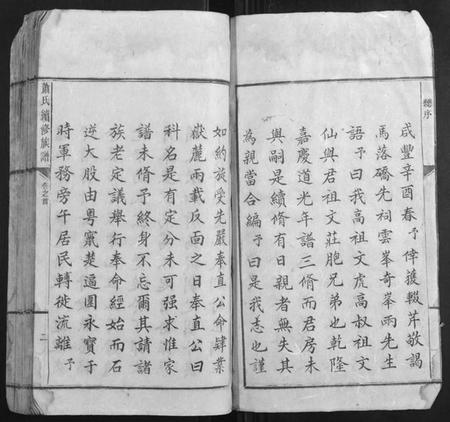 總序
咸豐辛酉春予倖獲輟芹敬謁
馬落礄先祠雲峯奇峯雨先生
語予曰我高祖文虎高叔祖文
仙與君祖文莊胞兄弟也乾隆
嘉慶道光年譜三脩而君房未
與嗣是續脩有日親者無失其
為親當合編予曰是我志也謹
如約旋受先嚴奉直公命肆業
嶽麓兩載反面之日奉直公曰
科名是有定分未可强求惟家
譜未脩予終身不忘爾其請諸
族老定議舉行奉命經始而石
逆大股由粵竄楚逼圍永寶于
時軍務旁午居民轉徙流離予
蕭氏續修族譜
卷之首
二